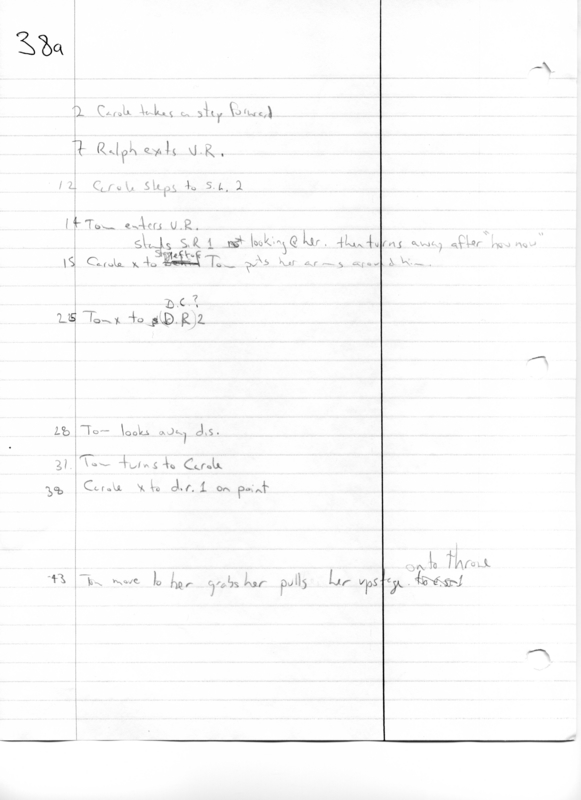 38a
2 Carole takes a step forward
7 Ralph exits U.R.
12 Carole steps to S.L. 2
14 Tom enters U.R.
stands S.R 1 not looking @ her. then turns away after "how now"
stage left of
15 Carole x to Tom puts her arms around him.
D.C.?
25 Tom x to (D.R) 2
28 Tom looks away dis.
31. Tom turns to Carole
38 Carole x to d.r. 1 on point
onto throne
43 Tom move to her grabs her pulls her upstage